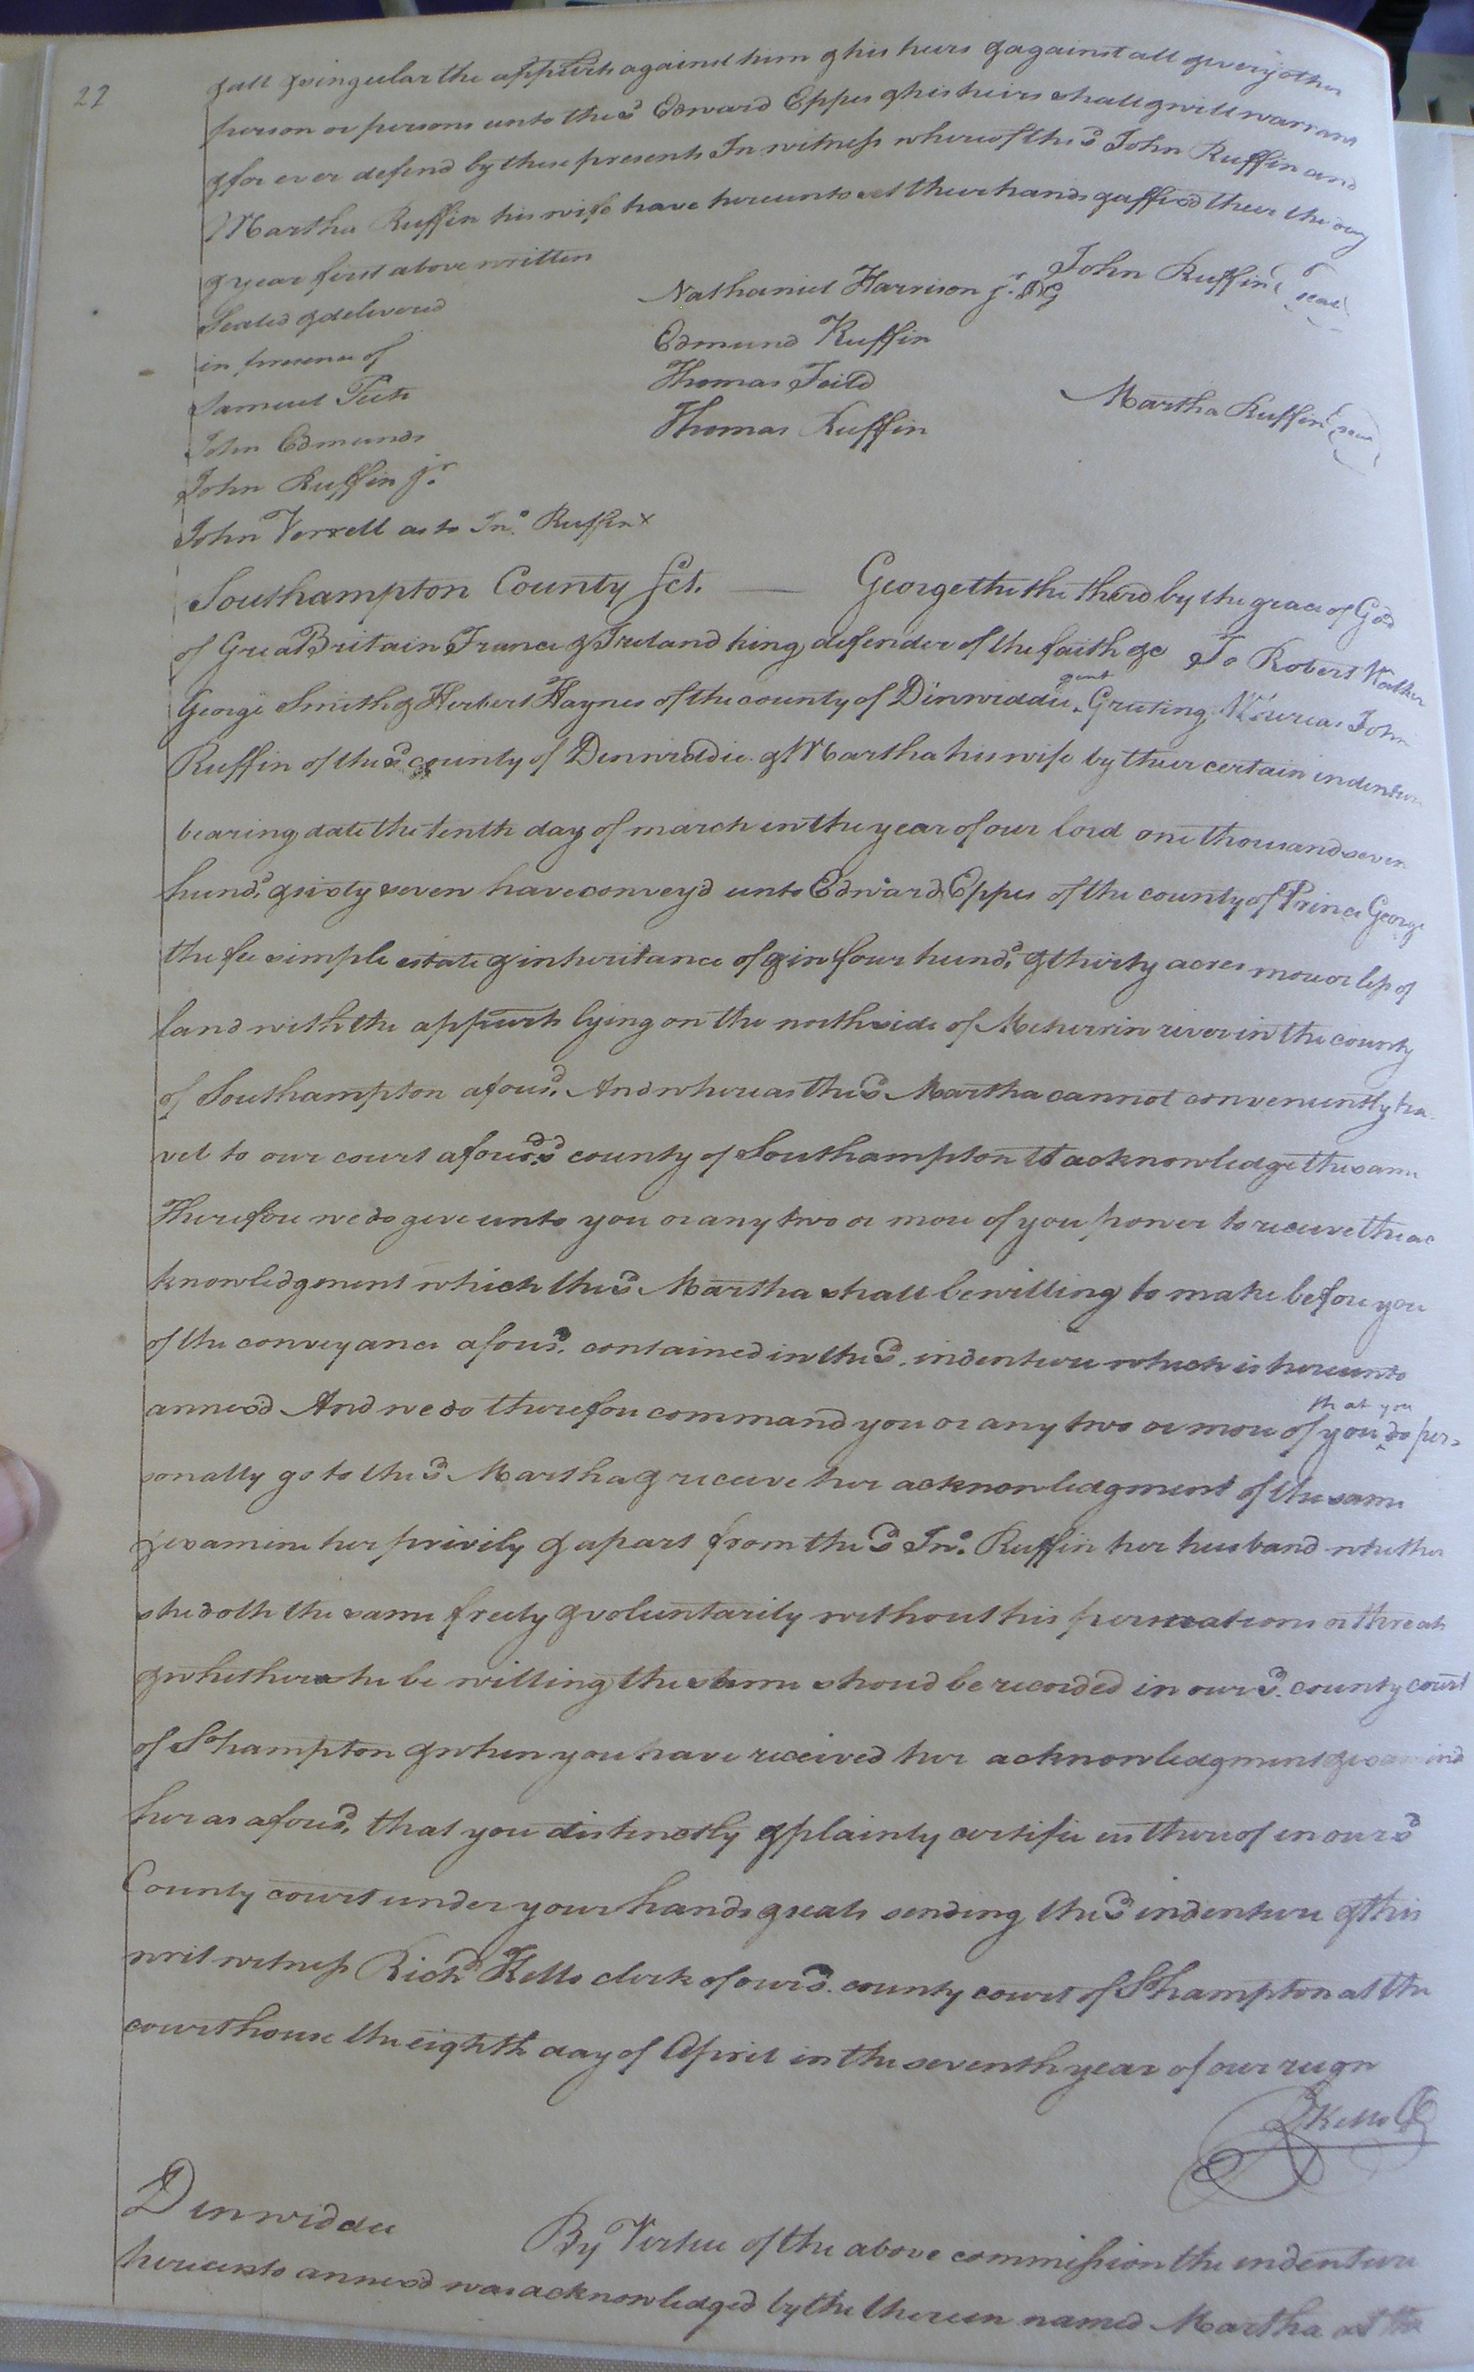 27
& all & singular the appurts against him & his heirs & against all & every other
person or persons unto the sd Edward Eppes & his heirs shall & will warrant
& for ever defend by these presents In witness whereof the sd John Ruffin and
Martha Ruffin his wife have hereunto set their hands & affixd their the day
& year first above written
John Ruffin (seal)
Sealed & delivered
in presence of
Samuel Peete
John Edmunds
John Ruffin jr.
John Verrell as to Jno. Ruffin x
Nathaniel Harrison jr. DG
Edmund Ruffin
Thomas Feild
Thomas Ruffin
Martha Ruffin (seal)
Southampton County Sct. — George the the third by the grace of God
of Great Britain France & Ireland king defender of the faith &c To Robert Walker
George Smith & Herbert Haynes of the county of Dinwiddie gent Greeting Whereas John
Ruffin of the sd county of Dinwiddie & Martha his wife by their certain indenture
bearing date the tenth day of march in the year of our lord one thousand seven
hundd. & sixty seven have convey'd unto Edward Eppes of the county of Prince George
the fee simple estate & inheritance of & in four hundd. & thirty acres more or less of
land with the appurts lying on the north side of Meherrin river in the county
of Southampton aforesd. And whereas the sd Martha cannot conveniently tra
vel to our court aforesd. sd county of Southampton to acknowledge the same
Therefore we do give unto you or any two or more of you power to receive the ac
knowledgment which the sd Martha shall be willing to make before you
of the conveyance aforesd. contained in the sd. indenture which is hereunto
annexd And we do therefore command you or any two or more of you that you do per=
sonally go to the sd Martha & receive her acknowledgment of the same
& examine her privily & apart from the sd Jno. Ruffin her husband whether
she doth the same freely & voluntarily without his persuations or threats
& whether she be willing the same shoud be recorded in our sd. county court
of S°hampton & when you have received her acknowledgment & examind
her as aforesd. that you distinctly & plainly certifie us thereof in our sd
County court under your hands & seals sending the sd indenture & this
writ witness Richd Kello clerk of our sd. county court of S°hampton at the
courthouse the eighth day of April in the seventh year of our reign
R Kello C
Dinwiddie
By Virtue of the above commission the indenture
hereunto annexd was acknowledged by the therein named Martha